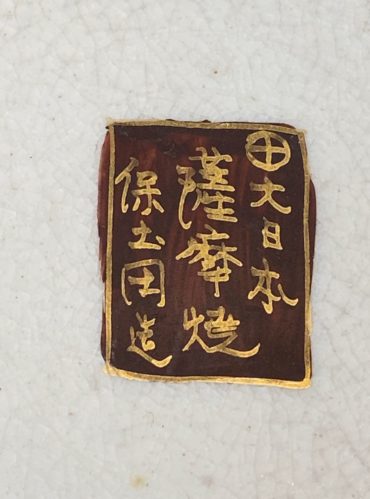 大日本
薩摩焼
保土田造